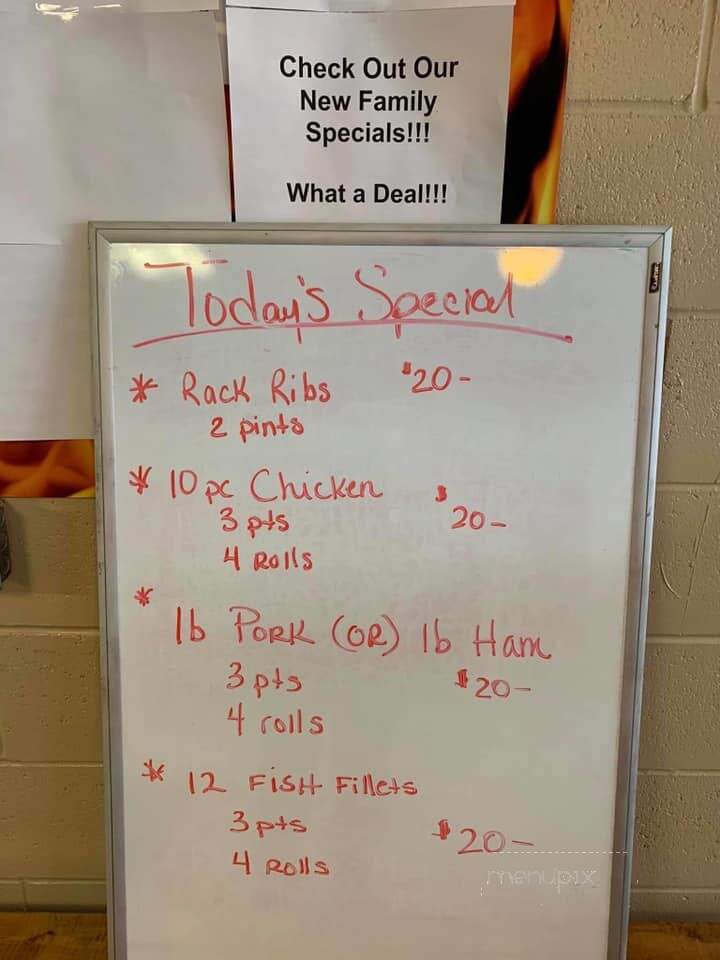 Check Out Our
New Family
Specials!!!
What a Deal!!!
Today's Special
* Rack Ribs $20-
2 pints
* 10 pc Chicken $20-
3 pts
4 Rolls
*
lb Pork (OR) lb Ham
3 pts $20-
4 rolls
* 12 Fish Fillets
3 pts $20-
4 Rolls
menupix